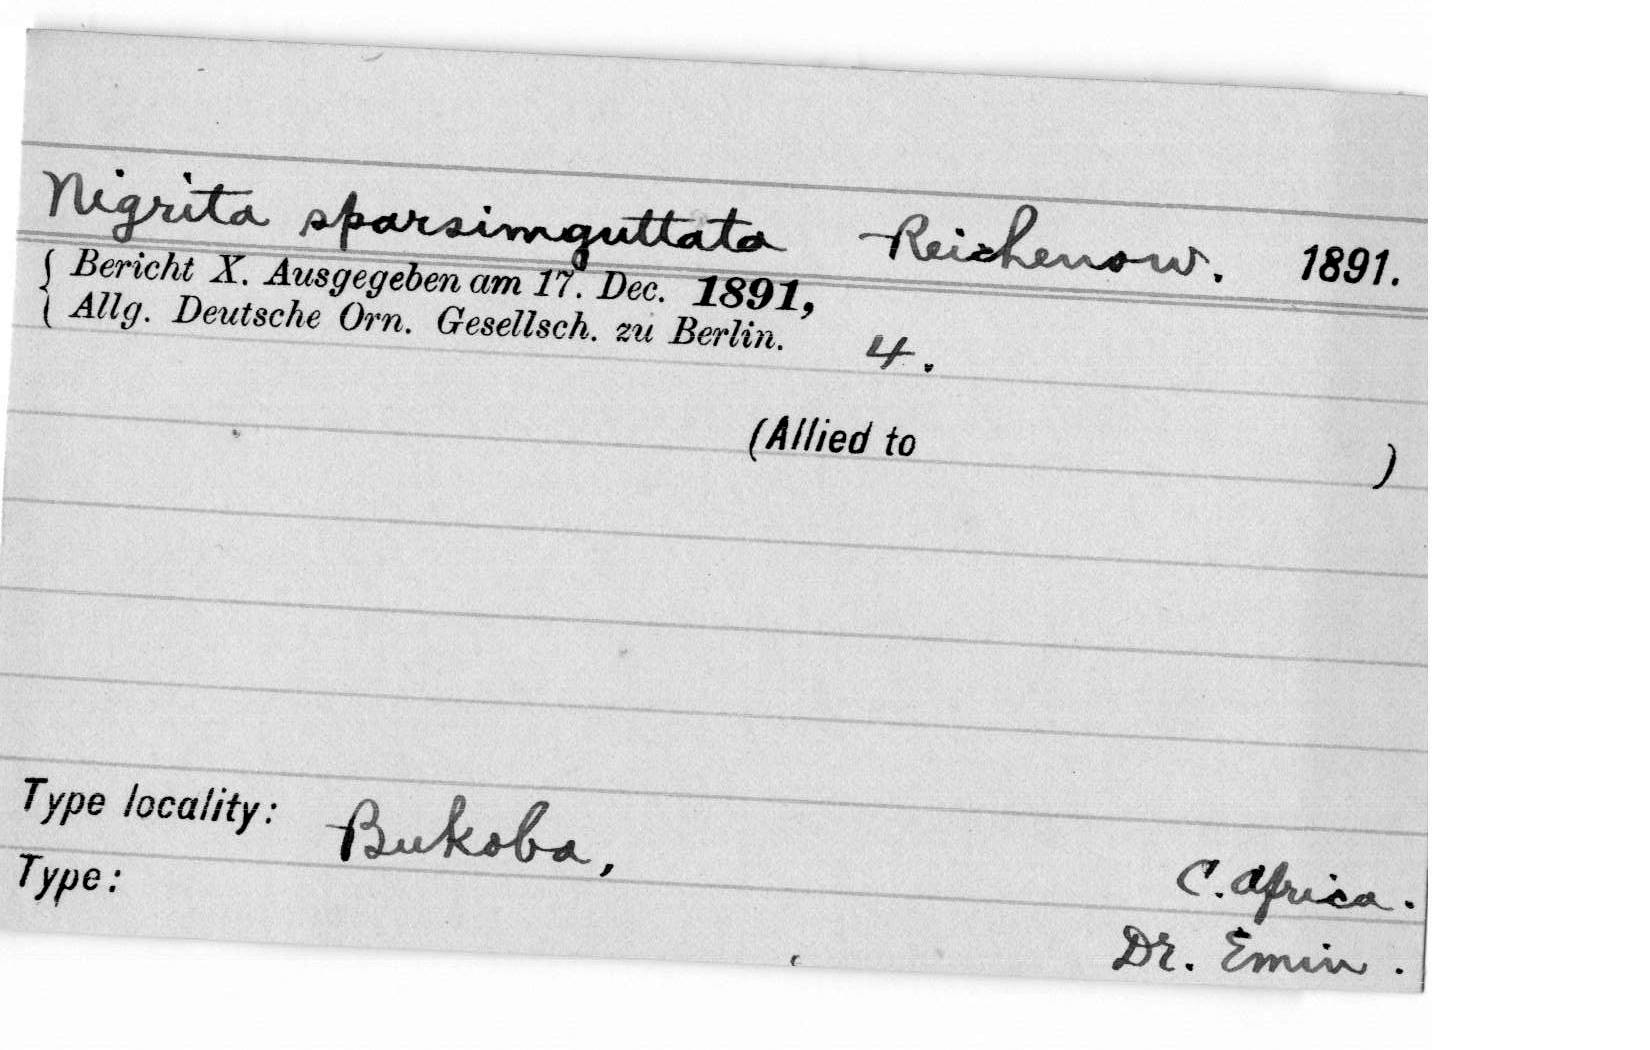 Nigrita sparsimguttata Reichenow. 1891.
{ Bericht X. Ausgegeben am 17. Dec. 1891,
Allg. Deutsche Orn. Gesellsch. zu Berlin. 4.
(Allied to )
Type locality: Bukoba, C. Africa.
Type: Dr. Emin.